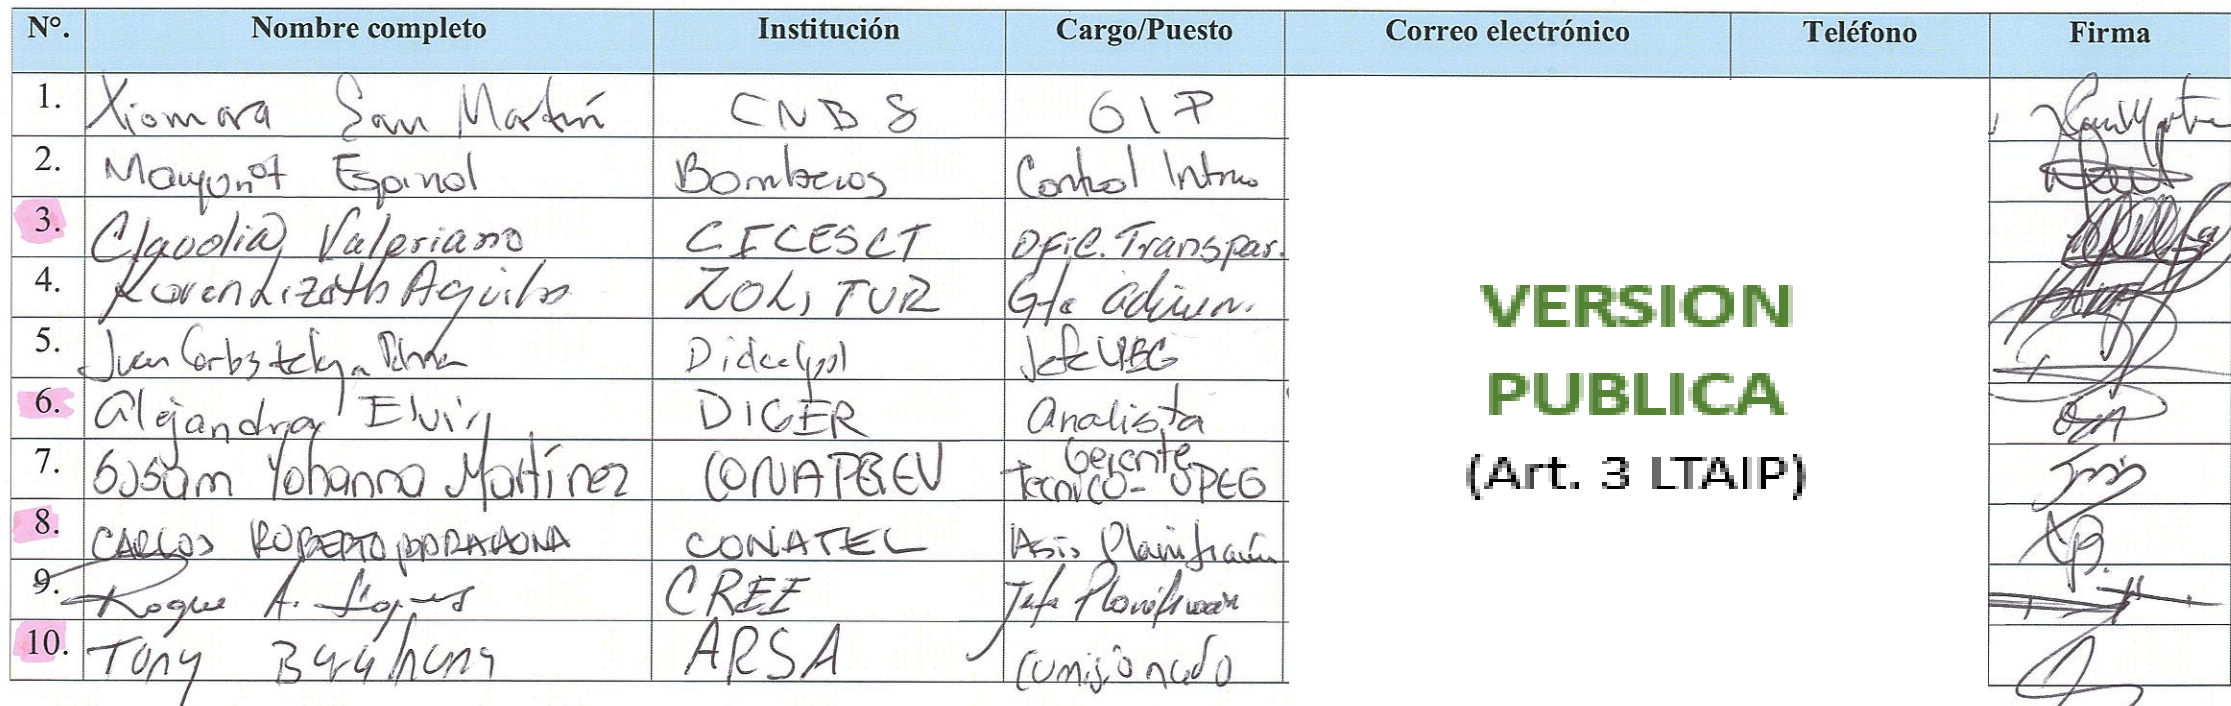 N°. Nombre completo Institución Cargo/Puesto Correo electrónico Teléfono Firma
1. Xiomara San Martín CNBS OIP
2. Espinal Bomberos Control Intrno
3. Claudia Valeriano CICESCT Ofic. Transpar.
4. Karen Lizeth Aguilar ZOLITUR Gte admin.
5. Juan Carlos Jefe
6. Alejandra Elvir DIGER Analista
7. Susam Yohanna Martínez CONAPREV Gerente
Tecnico - UPEG
8. CARLOS ROBERTO BARAHONA CONATEL Asis Planificación
9. Roque A. López CREE Jefe Planificación
10. Tony Barahona ARSA Comisionado
VERSION
PUBLICA
(Art. 3 LTAIP)